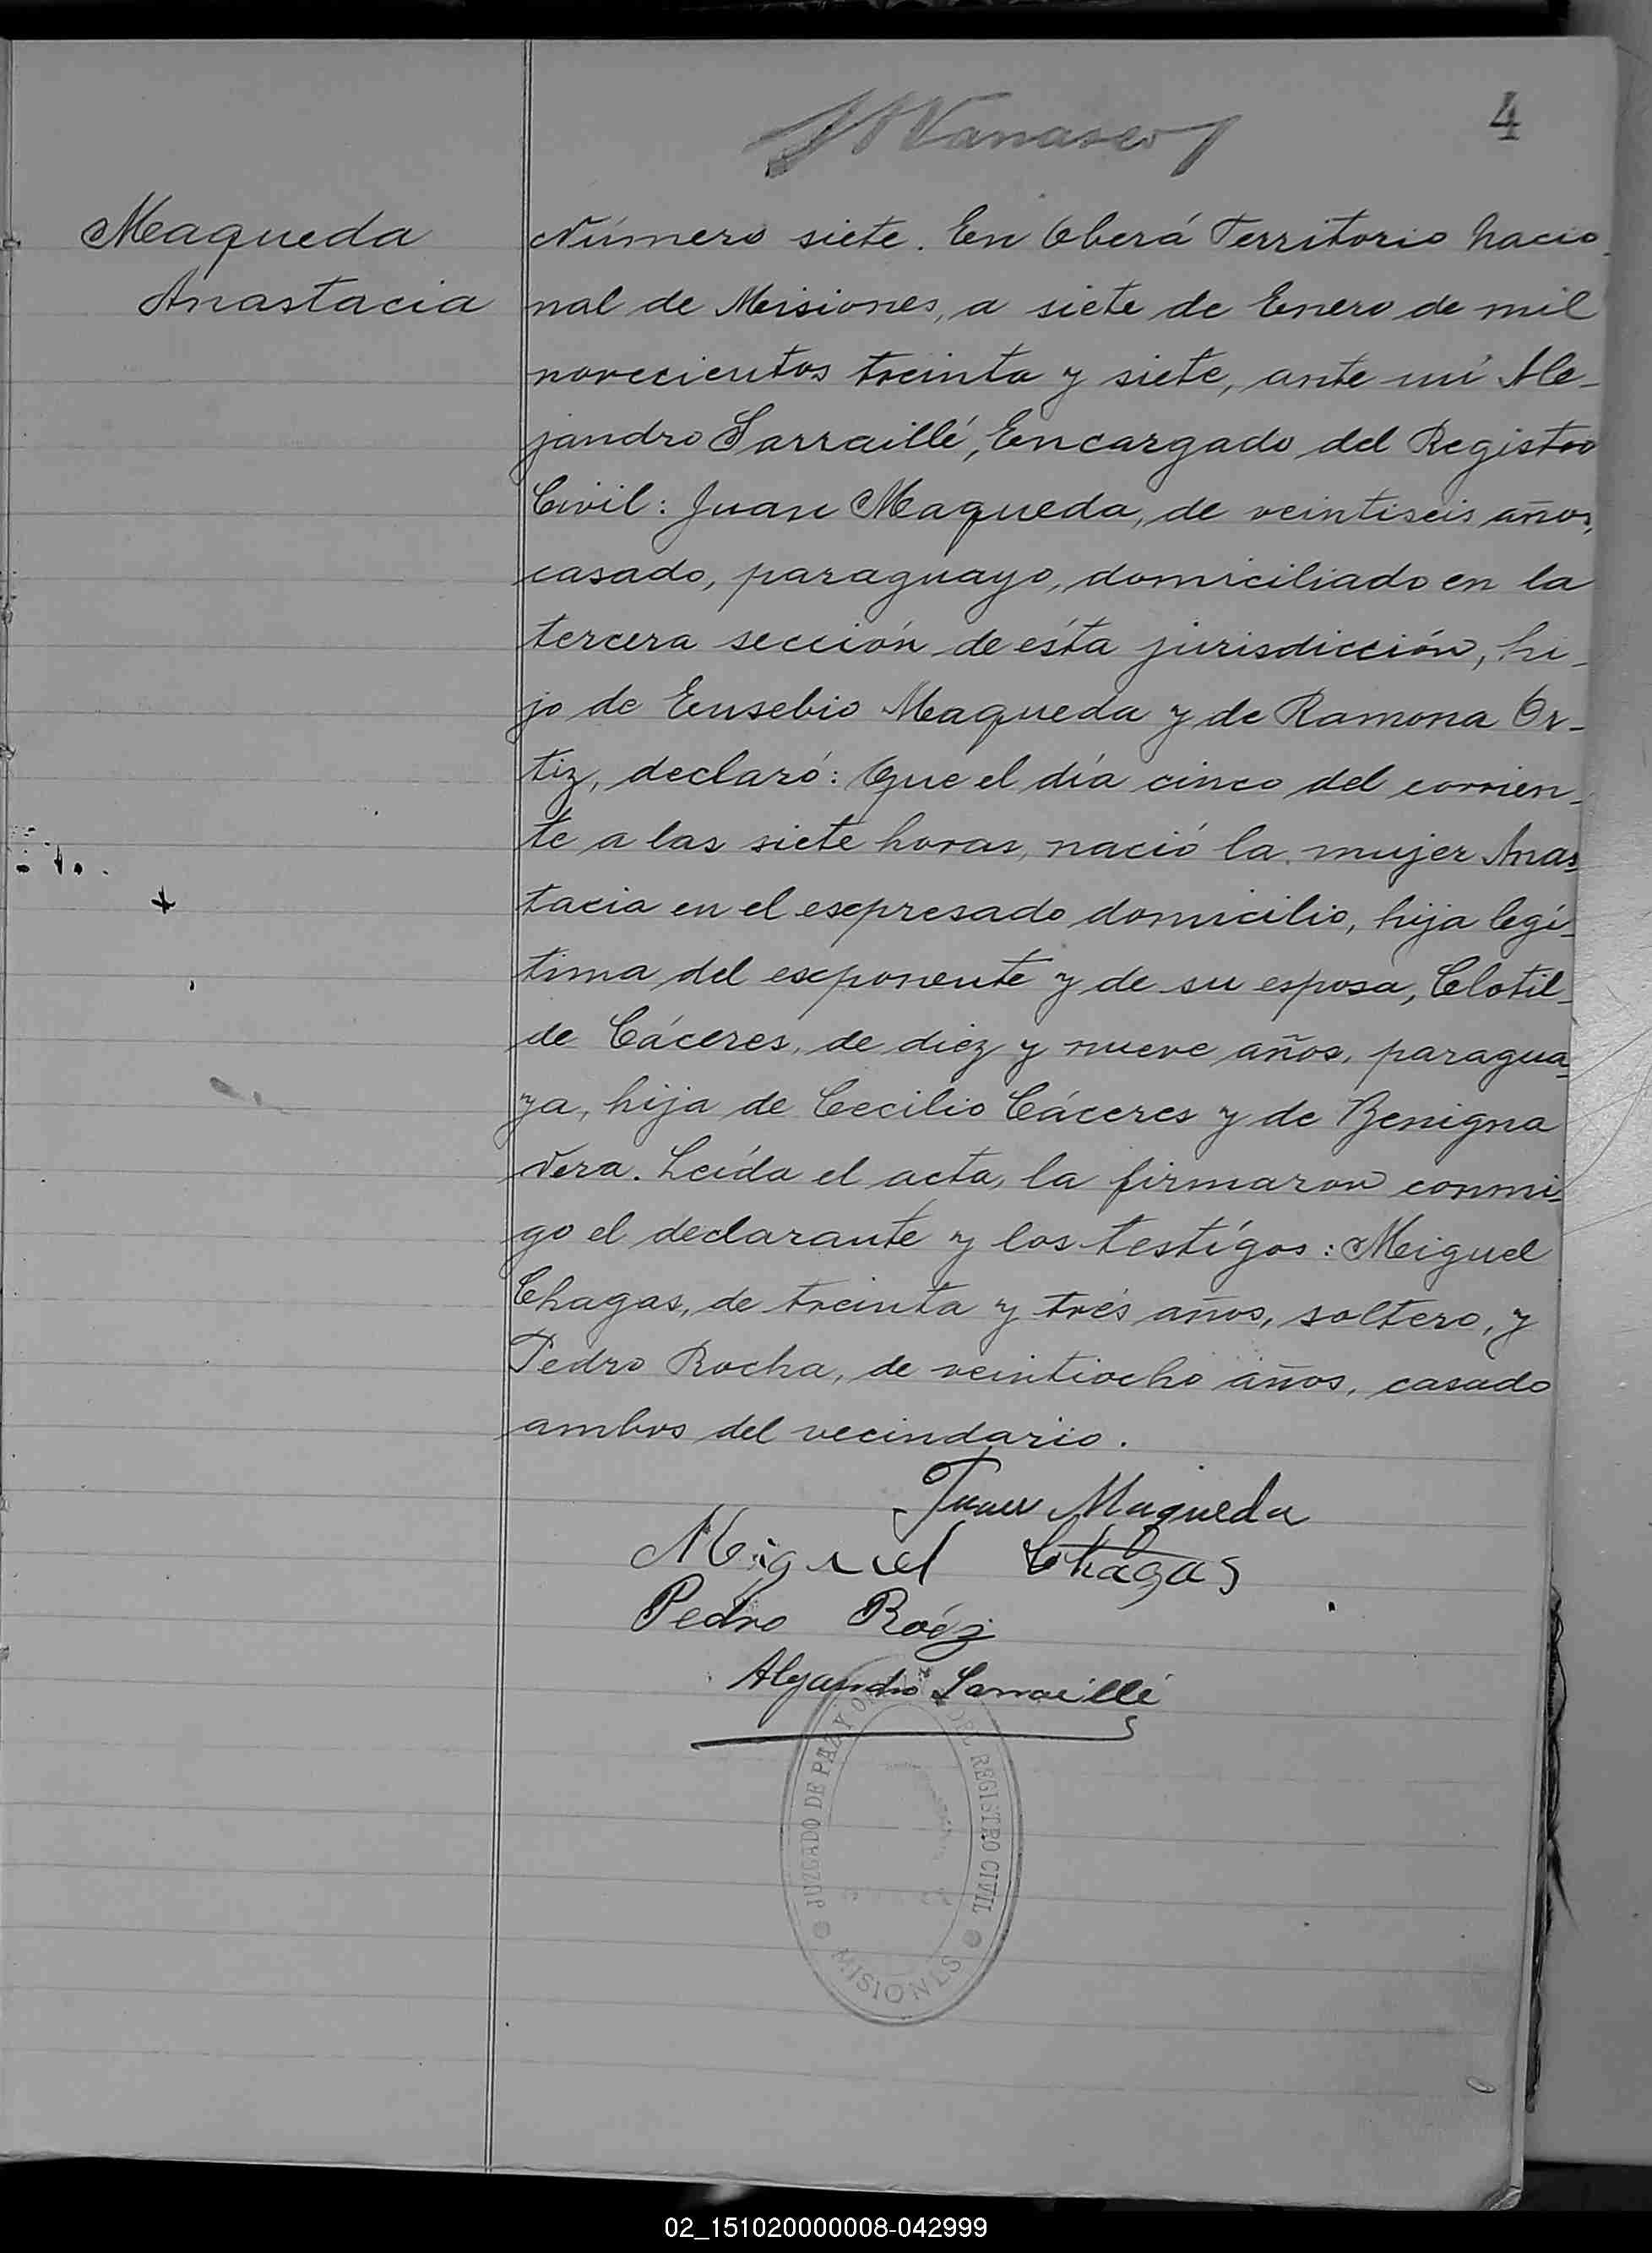 4
Maqueda
Anastacia
Número siete. En Oberá Territorio Nacio-
nal de Misiones, a siete de Enero de mil
novecientos treinta y siete, ante mí Ale-
jandro Larraillé, Encargado del Registro
Civil: Juan Maqueda, de veintiseis años,
casado, paraguayo, domiciliado en la
tercera sección de ésta jurisdicción, hi-
jo de Eusebio Maqueda y de Ramona Or-
tiz, declaró: Que el día cinco del corrien-
te a las siete horas, nació la mujer Anas-
tacia en el expresado domicilio, hija legí-
tima del exponente y de su esposa, Clotil-
de Cáceres, de diez y nueve años, paragua-
ya, hija de Cecilio Cáceres y de Benigna
Vera. Leída el acta, la firmaron conmi-
go el declarante y los testígos: Miguel
Chagas, de treinta y trés años, soltero, y
Pedro Rocha, de veintiocho años, casado
ambos del vecindario.
Juan Maqueda
Miguel Chagas
Pedro
Alejandro Larraillé
JUZGADO DE PAZ Y DEL REGISTRO CIVIL
MISIONES
02_151020000008-042999